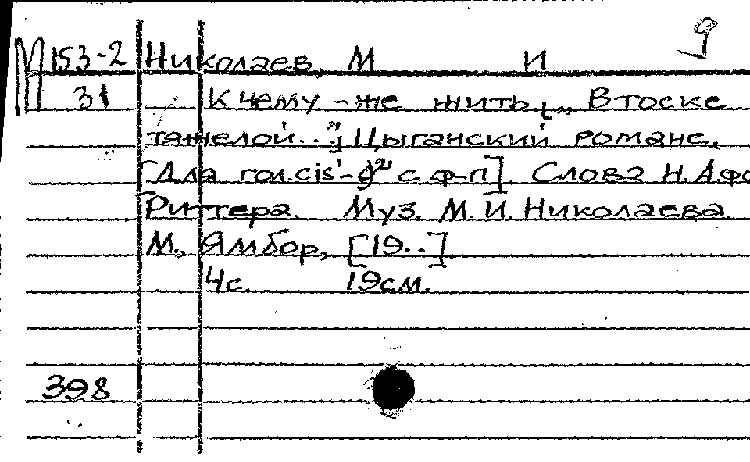 9
М 153-2 Николаев, М И
31 К чему-же жить („В тоске
тяжелой...”) Цыганский романс.
[Для гол. cis'-g² с ф-п]. Слова Н. Афо
Риттера. Муз. М. И. Николаева.
М., Ямбор, [19..]
4 с. 19 см.
398